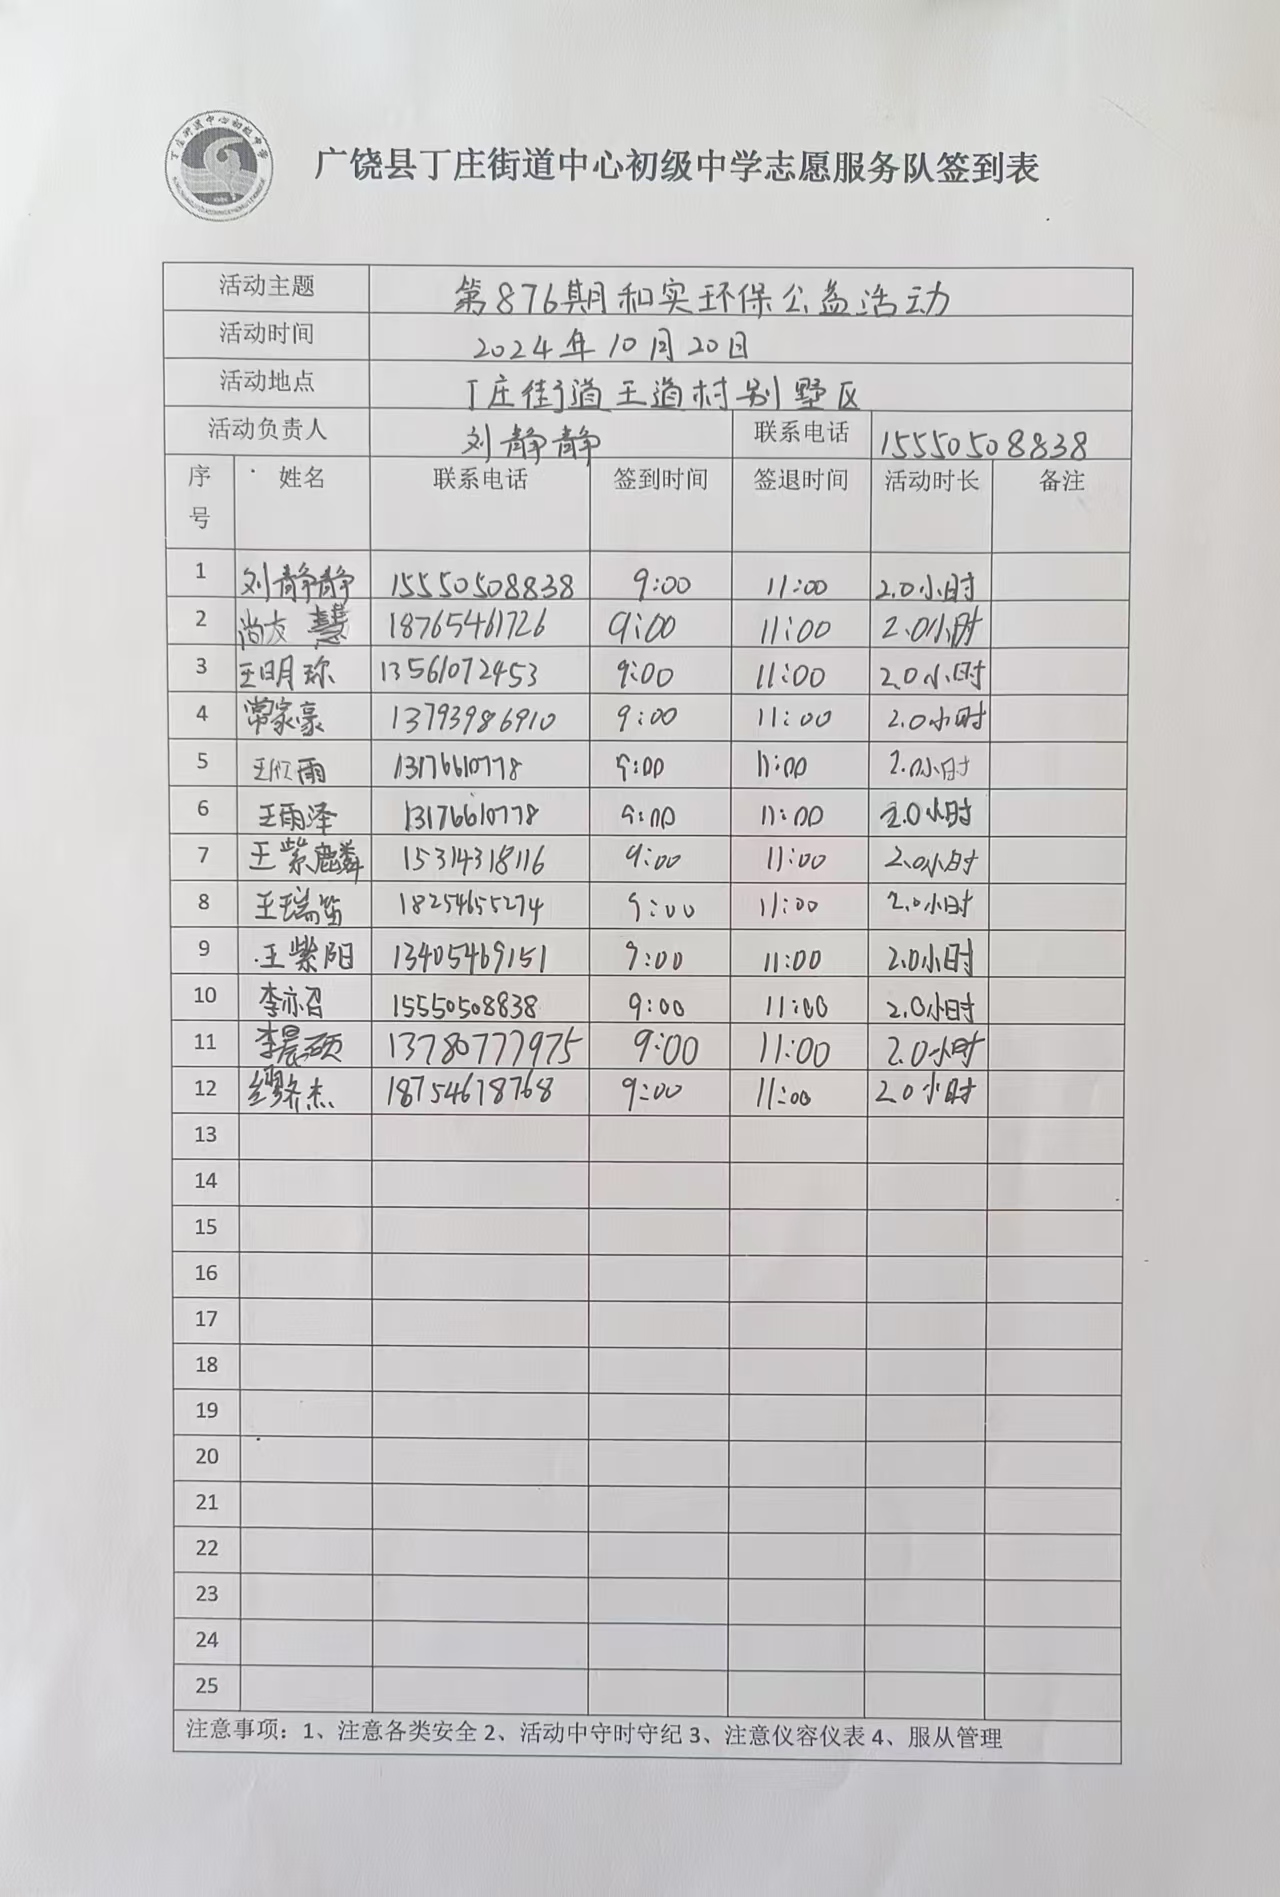 丁庄街道中心初级中学
广饶县丁庄街道中心初级中学志愿服务队签到表
活动主题 第876期和实环保公益活动
活动时间 2024年10月20日
活动地点 丁庄街道王道村别墅区
活动负责人 刘静静 联系电话 15550508838
序号 姓名 联系电话 签到时间 签退时间 活动时长 备注
1 刘静静 15550508838 9:00 11:00 2.0小时
2 尚友慧 18765461726 9:00 11:00 2.0小时
3 王明珎 13561072453 9:00 11:00 2.0小时
4 常家豪 13793986910 9:00 11:00 2.0小时
5 13176610778 9:00 11:00 2.0小时
6 王雨泽 13176610778 9:00 11:00 2.0小时
7 王紫麟 15314318116 9:00 11:00 2.0小时
8 王瑞笛 18254655274 9:00 11:00 2.0小时
9 王紫阳 13405469151 9:00 11:00 2.0小时
10 李亦召 15550508838 9:00 11:00 2.0小时
11 李晨硕 13780777975 9:00 11:00 2.0小时
12 缪乔杰 18754618768 9:00 11:00 2.0小时
13
14
15
16
17
18
19
20
21
22
23
24
25
注意事项：1、注意各类安全 2、活动中守时守纪 3、注意仪容仪表 4、服从管理